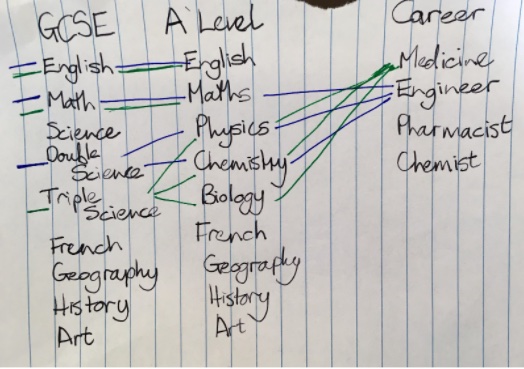 GCSE
English
Math
Science
Double
Science
Triple
Science
French
Geography
History
Art
A Level
English
Maths
Physics
Chemistry
Biology
French
Geography
History
Art
Career
Medicine
Engineer
Pharmacist
Chemist